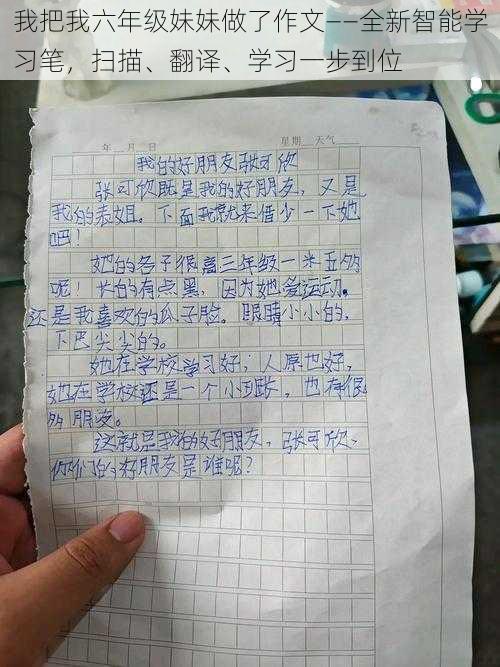 我把我六年级妹妹做了作文——全新智能学
习笔，扫描、翻译、学习一步到位
年 月 日 星期 天气
我的好朋友张可欣
张可欣既是我的好朋友，又是
我的表姐。下面我就来借少一下她
吧！
她的各子很高三年级一米五多
呢！长的有点黑，因为她爱运动。
还是我喜欢的瓜子脸。眼睛小小的，
下巴尖尖的。
她在学校学习好；人原也好，
她在学校还是一个小班长，也有很
多朋友。
这就是我的好朋友，张可欣、
你们的好朋友是谁呢？